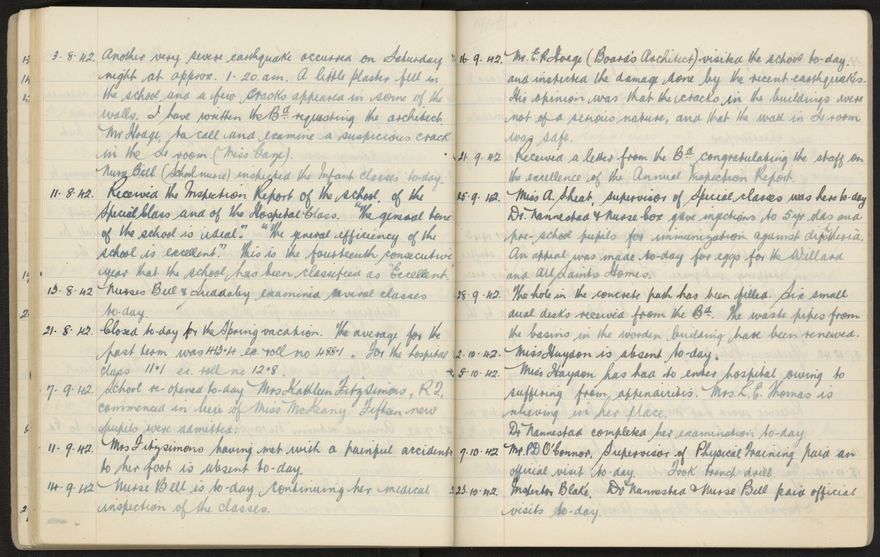 3.8.42. Another very severe earthquake occurred on Saturday
night at approx. 1.20 am. A little plaster fell in
the school and a few cracks appeared in some of the
walls. I have written the Bd requesting the architect
Mr Hoage to call and examine a suspicious crack
in the Se room (Miss).
Nurse Bell (School nurse) inspected the Infant classes to-day.
11.8.42. Received the Inspection Report of the school, of the
Special Class and of the Hospital Class. "The general tone
of the school is ideal." "The general efficiency of the
school is excellent." This is the fourteenth consecutive
year that the school has been classified as Excellent.
13.8.42 Nurses Bell & examined several classes
to-day.
21.8.42. Closed to-day for the Spring vacation. The average for the
past term was 443.4 ex. roll no 488.1. For the hospital
class 11.1 ex. roll no 12.8.
7.9.42. School re-opened to-day. Mrs Kathleen Fitzsimons, R2,
commenced in lieu of Miss McKeany. Fifteen new
pupils were admitted.
11.9.42. Mrs Fitzsimons having met with a painful accident
to her foot is absent to-day.
14.9.42 Nurse Bell is to-day continuing her medical
inspection of the classes.
16.9.42. Mr. E.R. Hoage (Board's Architect) visited the school to-day
and inspected the damage done by the recent earthquakes.
His opinion was that the cracks in the buildings were
not of a serious nature, and that the wall in Se room
was safe.
21.9.42 Received a letter from the Bd congratulating the staff on
the excellence of the Annual Inspection Report.
25.9.42. Miss A. Sheat, supervisor of Special classes was here to-day
Dr. Nannestad & Nurse Cox gave injections to 5 yr. olds and
pre-school pupils for immunization against diptheria.
An appeal was made to-day for eggs for the Willard
and All Saints Homes.
28.9.42. The hole in the concrete path has been filled. Six small
dual desks received from the Bd. The waste pipes from
the basins in the wooden building have been renewed.
2.10.42. Miss Haydon is absent to-day.
5.10.42. Miss Haydon has had to enter hospital owing to
suffering from appendicitis. Mrs. L.C. Thomas is
relieving in her place.
Dr Nannestad completed her examination to-day
7.10.42 Mr. P.D O'Connor, Supervisor of Physical Training paid an
official visit to-day. Took trench drill.
23.10.42 Inspector Blake, Dr Nannestad & Nurse Bell paid official
visits to-day.